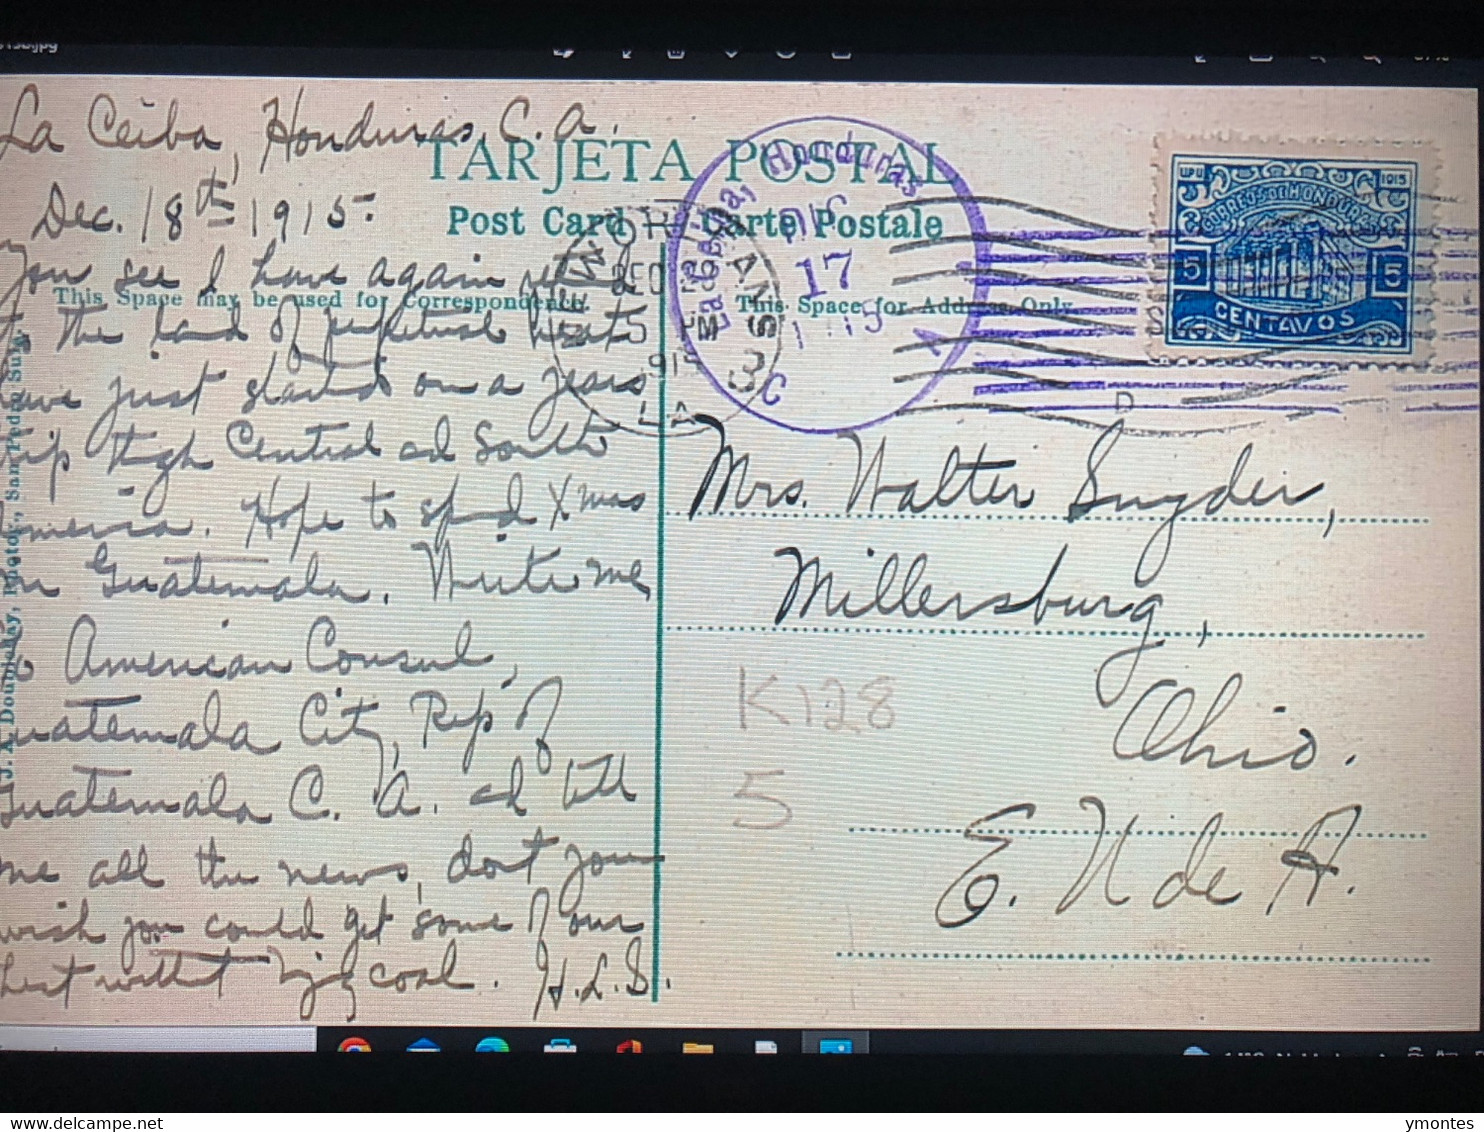 La Ceiba, Honduras, C. A.
Dec. 18th 1915.
you see I have again
the land of perpetual heat
have just started on a years
trip th'gh Central and South
America. Hope to spend Xmas
in Guatemala. Write me
American Consul,
Guatemala City, Rep. of
Guatemala C. A. and tell
me all the news, dont you
wish you could get some of our
heat without coal. H.L.S.
TARJETA POSTAL
Post Card Carte Postale
This Space may be used for Correspondence.
This Space for Address Only
J. A. Doubleday, Photog., San Pedro Sula.
La Ceiba, Honduras
DIC
17
1915
NEW ORLEANS
DEC
5
1915
LA
3
C
D
UPU 1915
CORREOS DE HONDURAS
5 5
CENTAVOS
Mrs. Walter Snyder,
Millersburg,
Ohio.
E. U de A.
K128
5
ymontes